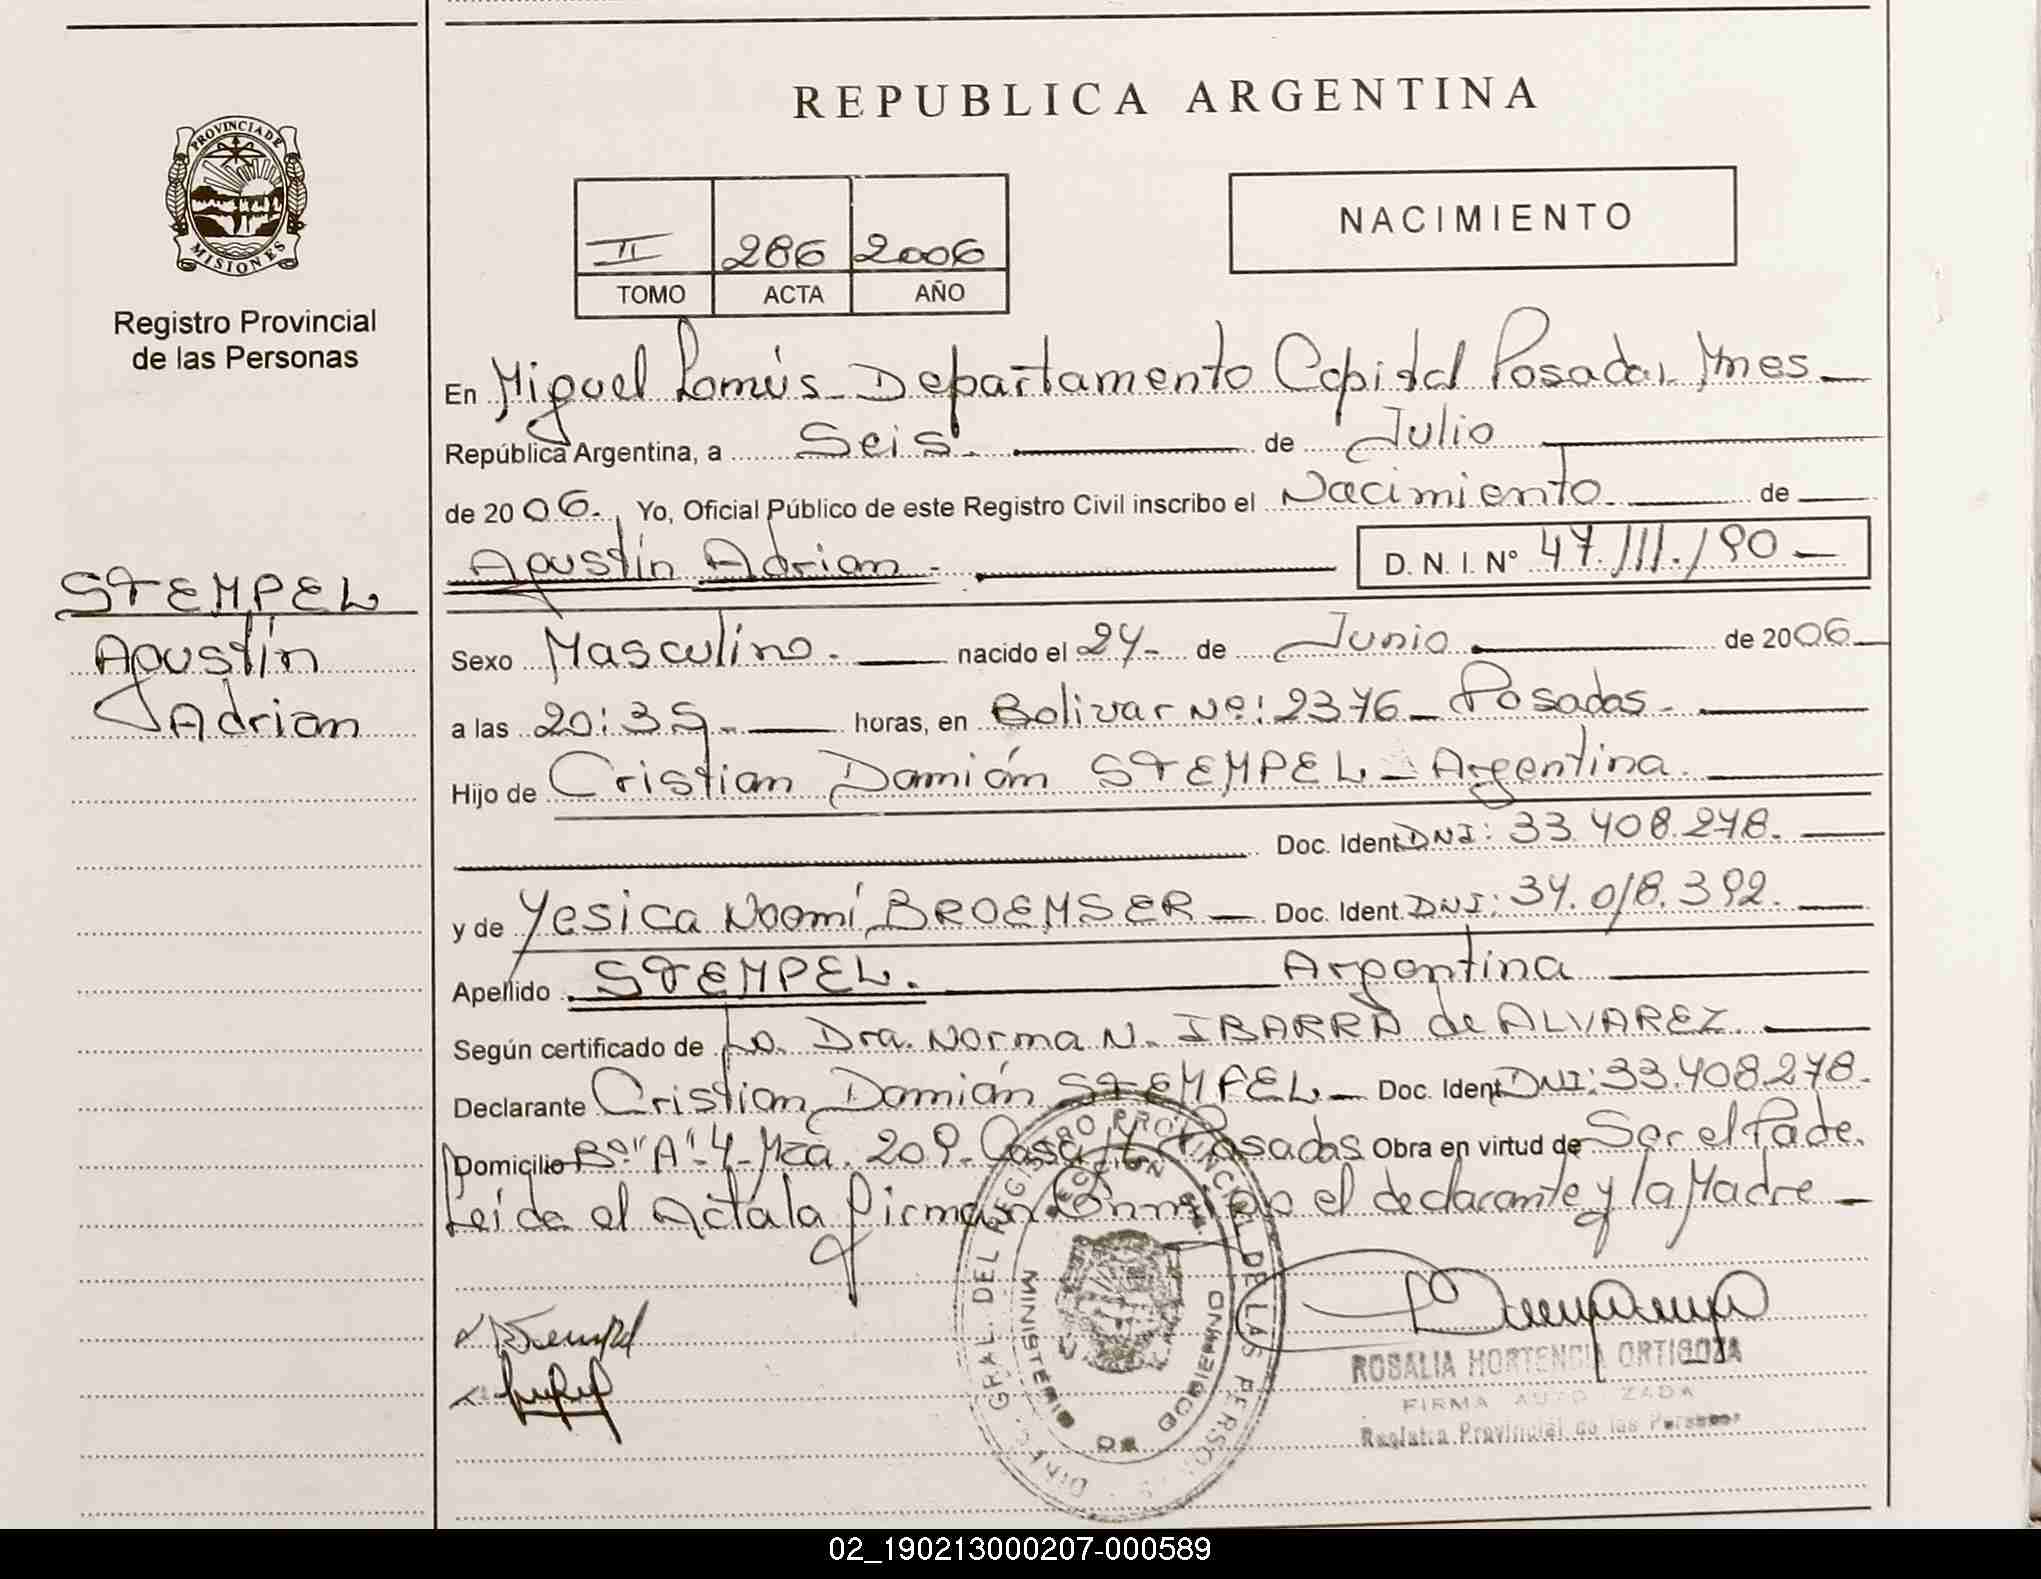 REPUBLICA ARGENTINA
PROVINCIA DE
MISIONES
Registro Provincial
de las Personas
II 286 2006
TOMO ACTA AÑO
NACIMIENTO
En Miguel Lanús - Departamento Capital Posadas, Mnes
República Argentina, a Seis. de Julio
de 2006. Yo, Oficial Público de este Registro Civil inscribo el Nacimiento de
Agustín Adrian - D. N. I. N° 47.111.190
STEMPEL
Agustín
Adrian
Sexo Masculino. nacido el 24 - de Junio de 2006
a las 20:35 horas, en Bolivar Nº: 2376 - Posadas -
Hijo de Cristian Damián STEMPEL - Argentina.
Doc. Ident DNI: 33.408.278.
y de Yesica Noemí BROEMSER - Doc. Ident. DNI: 34.018.392.
Apellido STEMPEL. Argentina
Según certificado de La. Dra. Norma N. IBARRA de ALVAREZ
Declarante Cristian Damián STEMPEL - Doc. Ident DNI: 33.408.278.
Domicilio Bº "A"-4-Mza. 209- Casa Posadas Obra en virtud de Ser el Padre.
Leida el Acta la firman Conmigo el declarante y la Madre
GRAL. DEL REGISTRO PROVINCIAL DE LAS PERSONAS
MINISTERIO DE GOBIERNO
ROSALIA HORTENCIA ORTIGOZA
FIRMA AUTORIZADA
Registro Provincial de las Personas
02_190213000207-000589